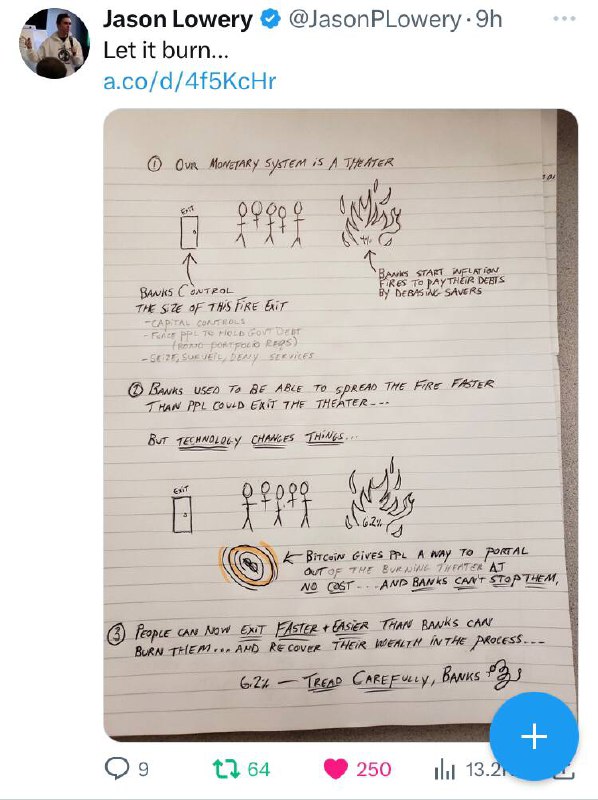 Jason Lowery @JasonPLowery · 9h
Let it burn...
a.co/d/4f5KcHr
① OUR MONETARY SYSTEM IS A THEATER
EXIT
4%
BANKS CONTROL
THE SIZE OF THIS FIRE EXIT
- CAPITAL CONTROLS
- FORCE PPL TO HOLD GOVT DEBT
(BOND PORTFOLIO REQS)
- SEIZE, SURVEIL, DENY SERVICES
BANKS START INFLATION
FIRES TO PAY THEIR DEBTS
BY DEBASING SAVERS
② BANKS USED TO BE ABLE TO SPREAD THE FIRE FASTER
THAN PPL COULD EXIT THE THEATER---
BUT TECHNOLOGY CHANGES THINGS...
EXIT
6.2%
BITCOIN GIVES PPL A WAY TO PORTAL
OUT OF THE BURNING THEATER AT
NO COST... AND BANKS CAN'T STOP THEM,
③ PEOPLE CAN NOW EXIT FASTER + EASIER THAN BANKS CAN
BURN THEM... AND RECOVER THEIR WEALTH IN THE PROCESS---
6.2% — TREAD CAREFULLY, BANKS
9 64 250 13.2